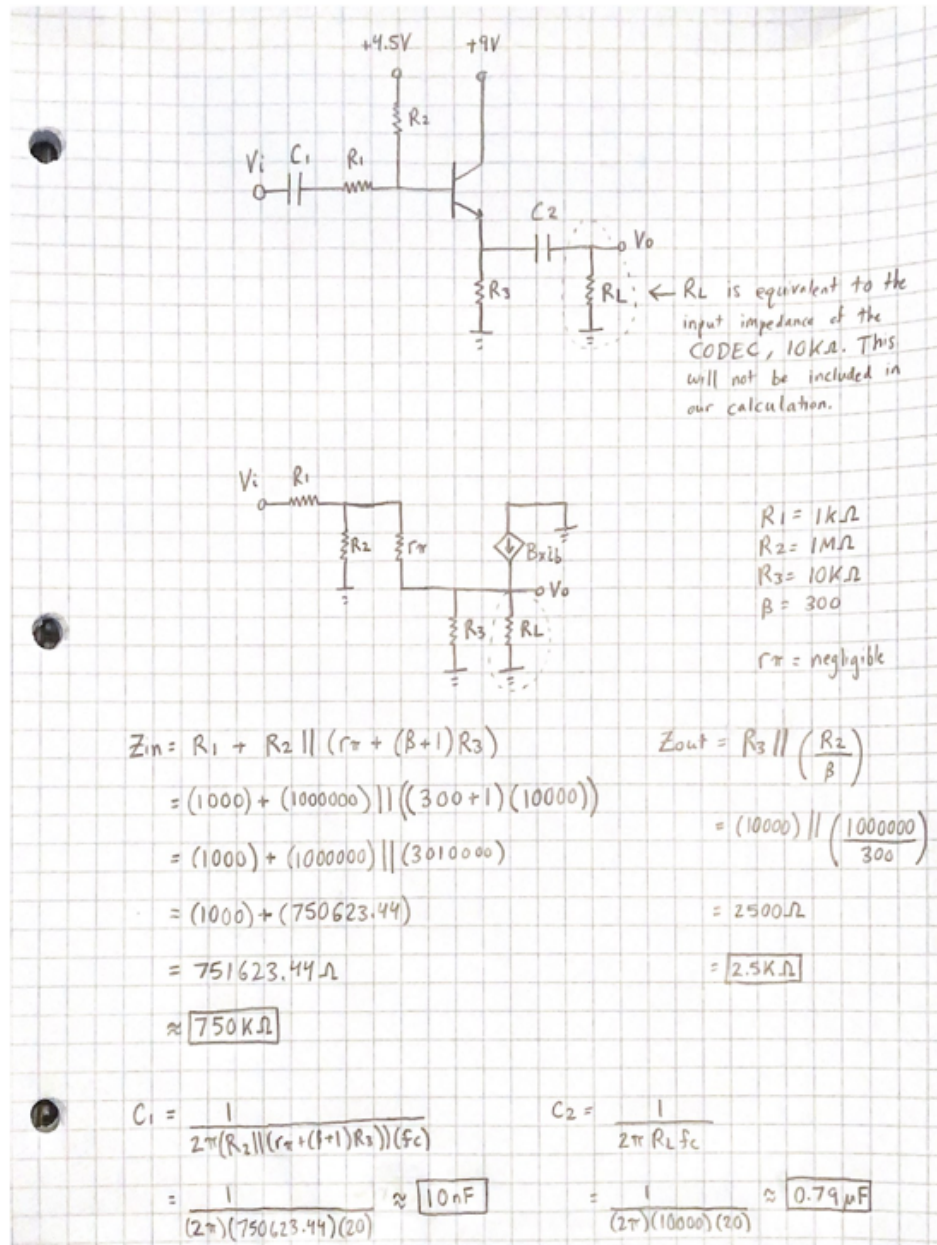 +4.5V +9V
R2
Vi C1 R1
C2
Vo
R3 RL ← RL is equivalent to the
input impedance of the
CODEC, 10KΩ. This
will not be included in
our calculation.
Vi R1
R2 rπ Bxib
Vo
R3 RL
R1 = 1kΩ
R2= 1MΩ
R3= 10KΩ
β = 300
rπ = negligible
Zin = R1 + R2 || (rπ + (β+1)R3)
= (1000) + (1000000) || ((300+1)(10000))
= (1000) + (1000000) || (3010000)
= (1000) + (750623.44)
= 751623.44Ω
≈ 750KΩ
Zout = R3 || (R2/β)
= (10000) || (1000000/300)
= 2500Ω
= 2.5KΩ
C1 = 1/(2π(R2||(rπ+(β+1)R3))(fc))
= 1/((2π)(750623.44)(20)) ≈ 10nF
C2 = 1/(2π RL fc)
= 1/((2π)(10000)(20)) ≈ 0.79μF